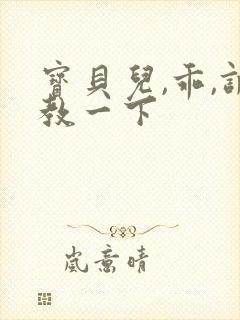 寶貝兒,乖,
教一下
嵐意晴